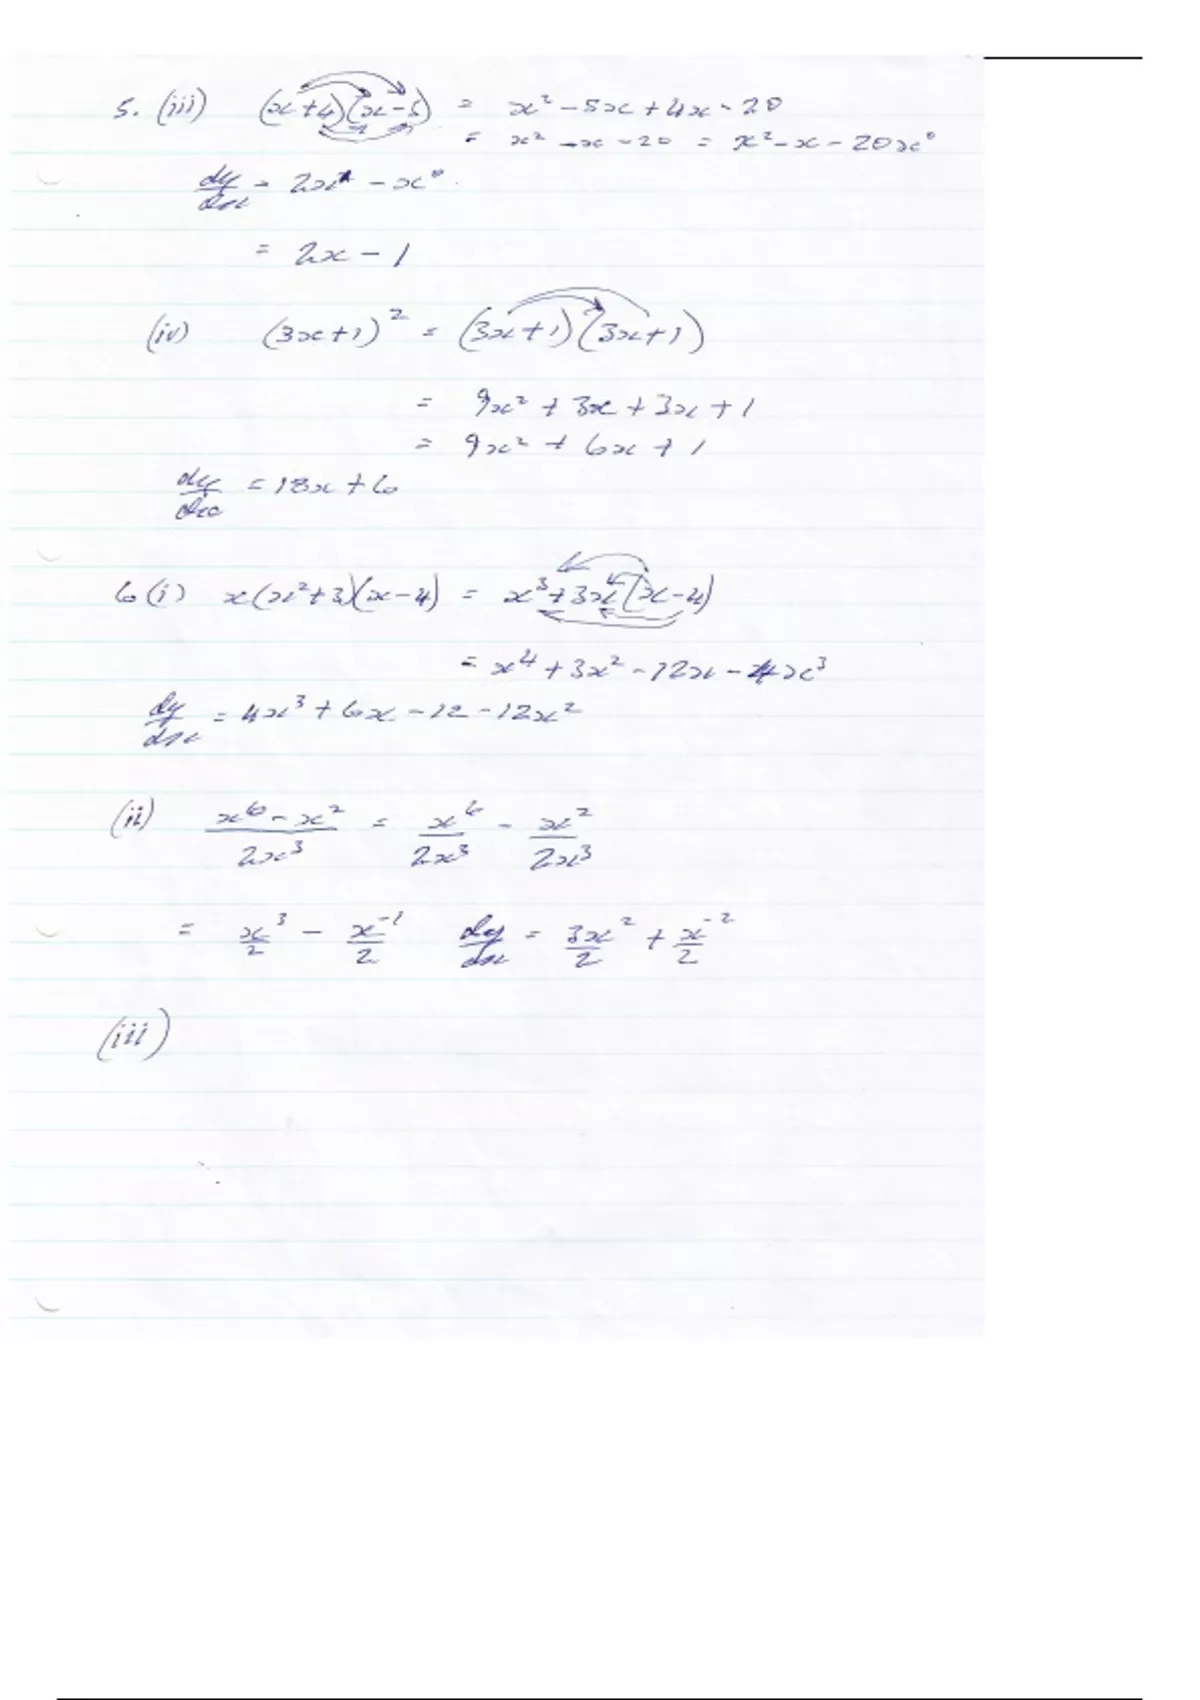 5. (iii) (x+4)(x-5) = x² - 5x + 4x - 20
= x² - x - 20 = x² - x - 20x⁰
dy/dx = 2x¹ - x⁰.
= 2x - 1
(iv) (3x+1)² = (3x+1)(3x+1)
= 9x² + 3x + 3x + 1
= 9x² + 6x + 1
dy/dx = 18x + 6
6(i) x(x²+3)(x-4) = x³+3x(x-4)
= x⁴ + 3x² - 12x - 4x³
dy/dx = 4x³ + 6x - 12 - 12x²
(ii) (x⁶ - x²)/2x³ = x⁶/2x³ - x²/2x³
= x³/2 - x⁻¹/2 dy/dx = 3x²/2 + x⁻²/2
(iii)